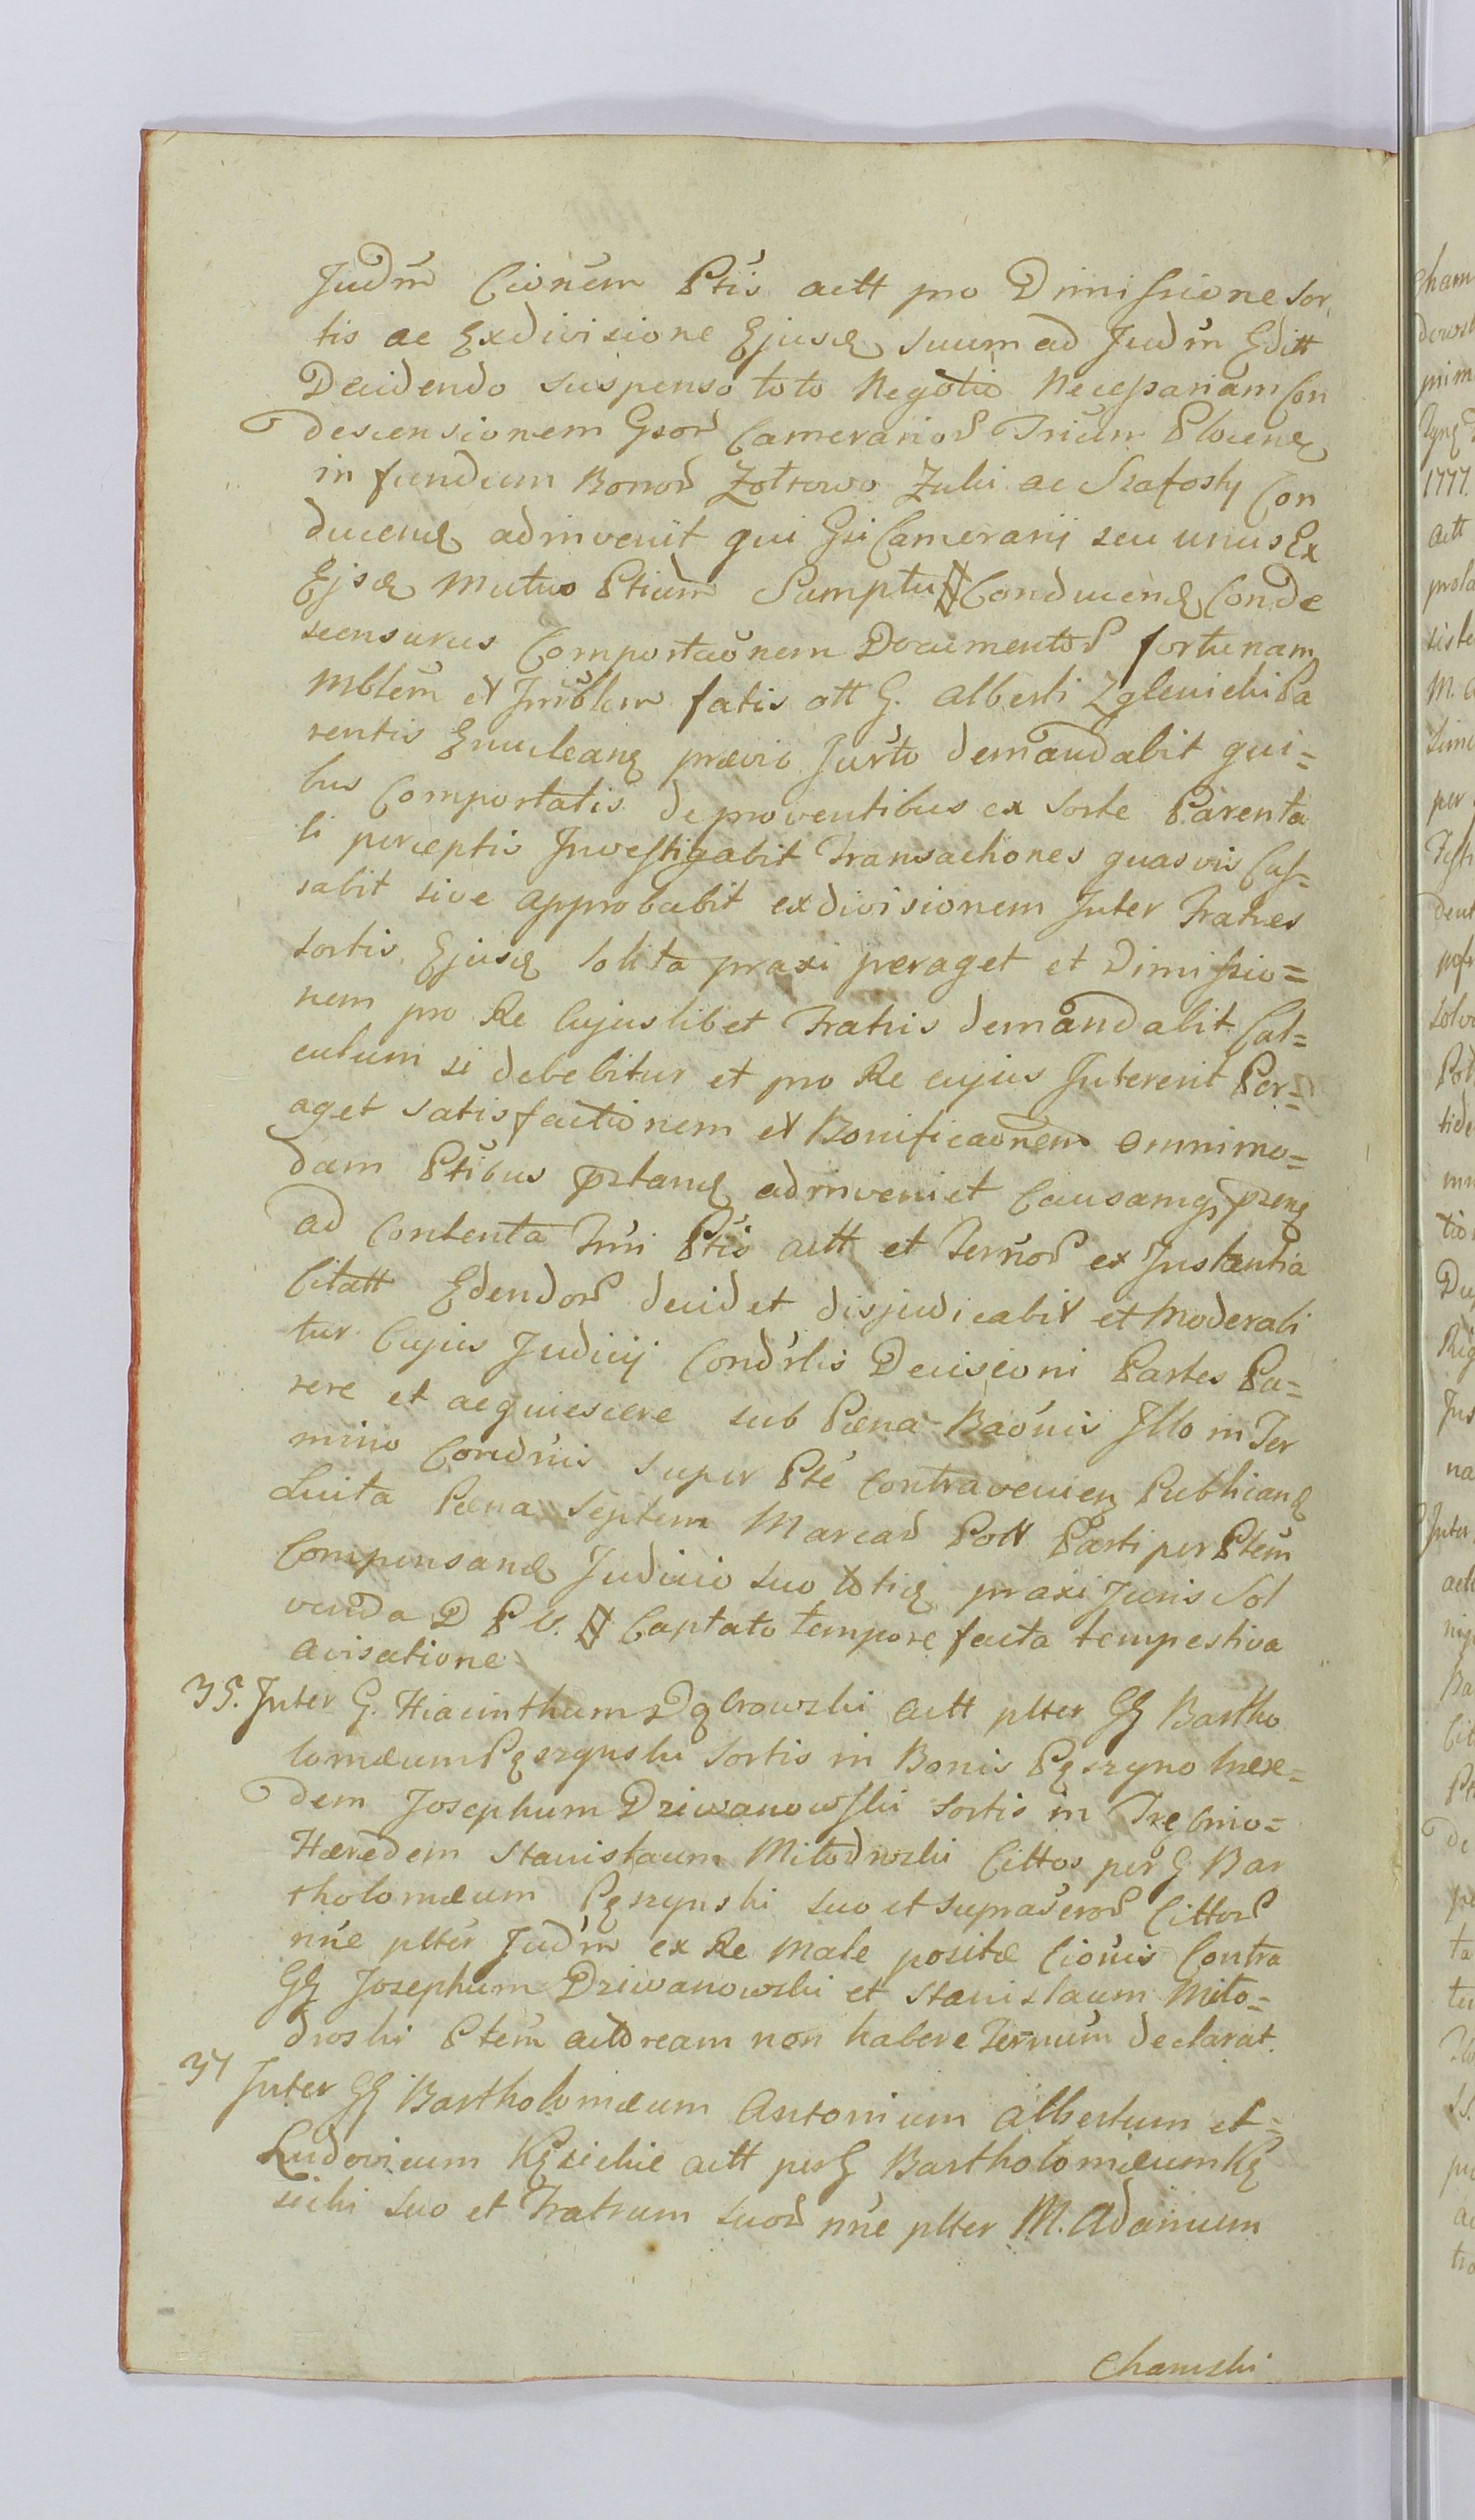 Judm Cionem Ptis actt pro Dimissione Sor
tis ac Exdivisione Ejusd suum ad Judm Editt
Decidendo suspenso toto Negotio Necessariam Con
descensionem Gsor Camerarior Trium Plocens
in fundum Bonor Zołtowo Zulki ac Szafosty Con
ducend adinvenit qui Gsi Camerarij seu unus Ex
Ejsd Mutuo Ptium Sumptu Conducend Conde
scensurus Comportaonem Documentor fortunam
Mblem et Imblem fatis ott G. Alberti Zglenichi Pa
rentis Enucleans prævio Jurto demandabit qui=
bus Comportatis de proventibus ex Sorte Parenta
li perceptis Investigabit Transactiones quasvis Cas=
sabit sive approbabit exdivisionem Inter Fratres
sortis Ejusd solita praxi peraget et Dimissio=
nem pro Re Cujuslibet Fratris demandabit Cal=
culum si debebitur et pro Re cujus Intererit Per=
aget satisfactionem et Bonificaonem omnimo=
dam Ptibus pstand adinveniet Causamq psens
ad Contenta Tmi Ptis actt et Termor ex Instantia
Citatt Edendor decidet disjudicabit et Moderabi
tur Cujus Judicij Condrlis Decisioni Partes Pa=
rere et acquiescere sub Pæna Baonis Illo in Ter
mino Condnis super Pte Contravenien Publicand
Luita Pæna Septem Marcar Poll Parti per Ptem
Compensand Judicio suo totiq praxi Juris Sol
venda D P U. Captato tempore facta tempestiva
avisatione
35. Inter G. Hiacinthum Dąbrowski actt plter GG Bartho
lomæum Pęszynski Sortis in Bonis Pęszyno hære=
dem Josephum Dziwanowski Sortis in Trębino=
Hæredem Stanislaum Miłodrwski Cittos per G Bar
tholomæum Pęszynski suo et supraseros Cittor
nne plter Judm ex Re Male positæ Cionis Contra
GG Josephum Dziwanowski et Stanislaum Miło=
droski Ptem actoream non habere Ternum declarat.
37 Inter GG Bartholomæum Antonium Albertum et=
Ludovicum Kęsickie actt per G Bartholomæum Kę
sicki suo et Fratrum suor nne plter M. Adamum
Chamski